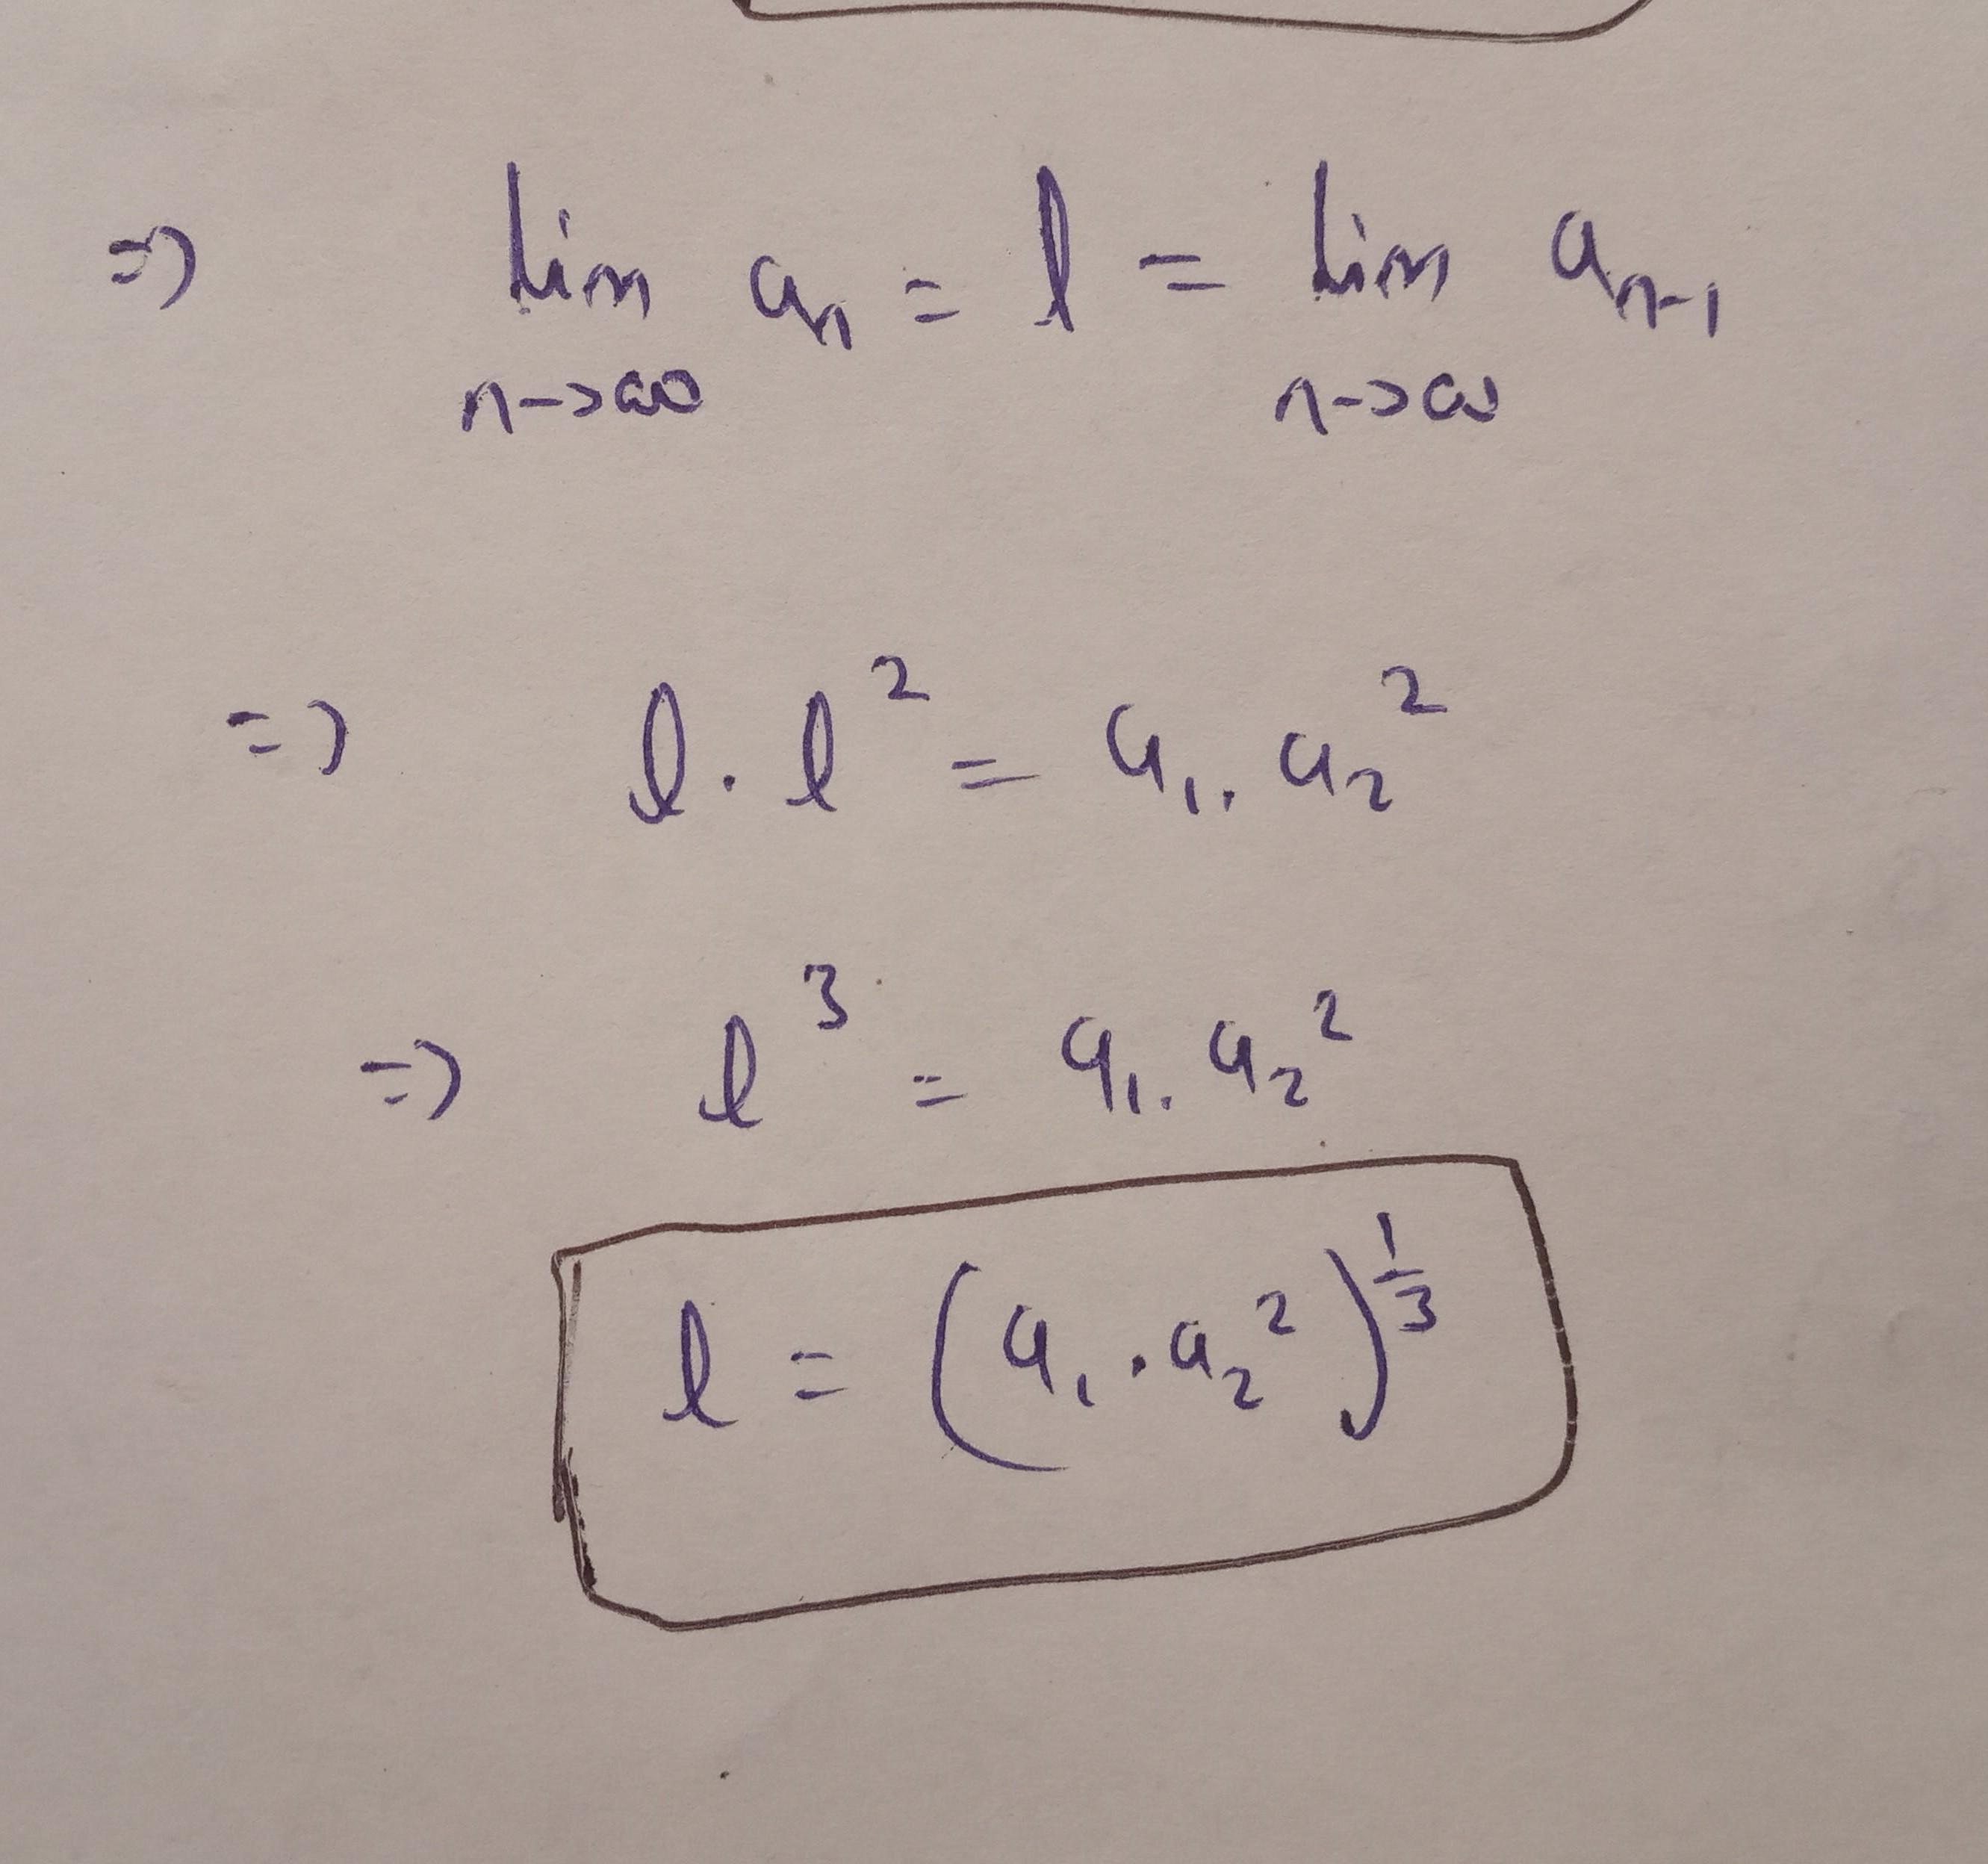 => lim aₙ = l = lim aₙ₋₁
n->∞ n->∞
=> l . l² = a₁ . a₂²
=> l³ = a₁ . a₂²
l = (a₁ . a₂²)^(1/3)